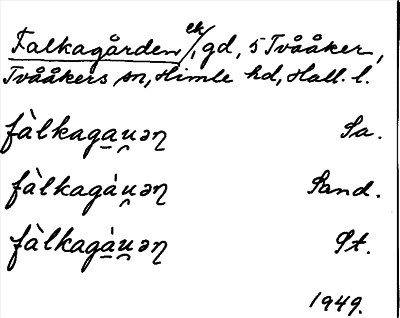 Falkagården ek/, gd, 5 Tvååker,
Tvååkers sn, Himle hd, Hall. l.
fàlkaga̲u̯ən Sa.
fàlkagá̲u̯ən Sand.
fàlkagá̲u̯ən St.
1949.